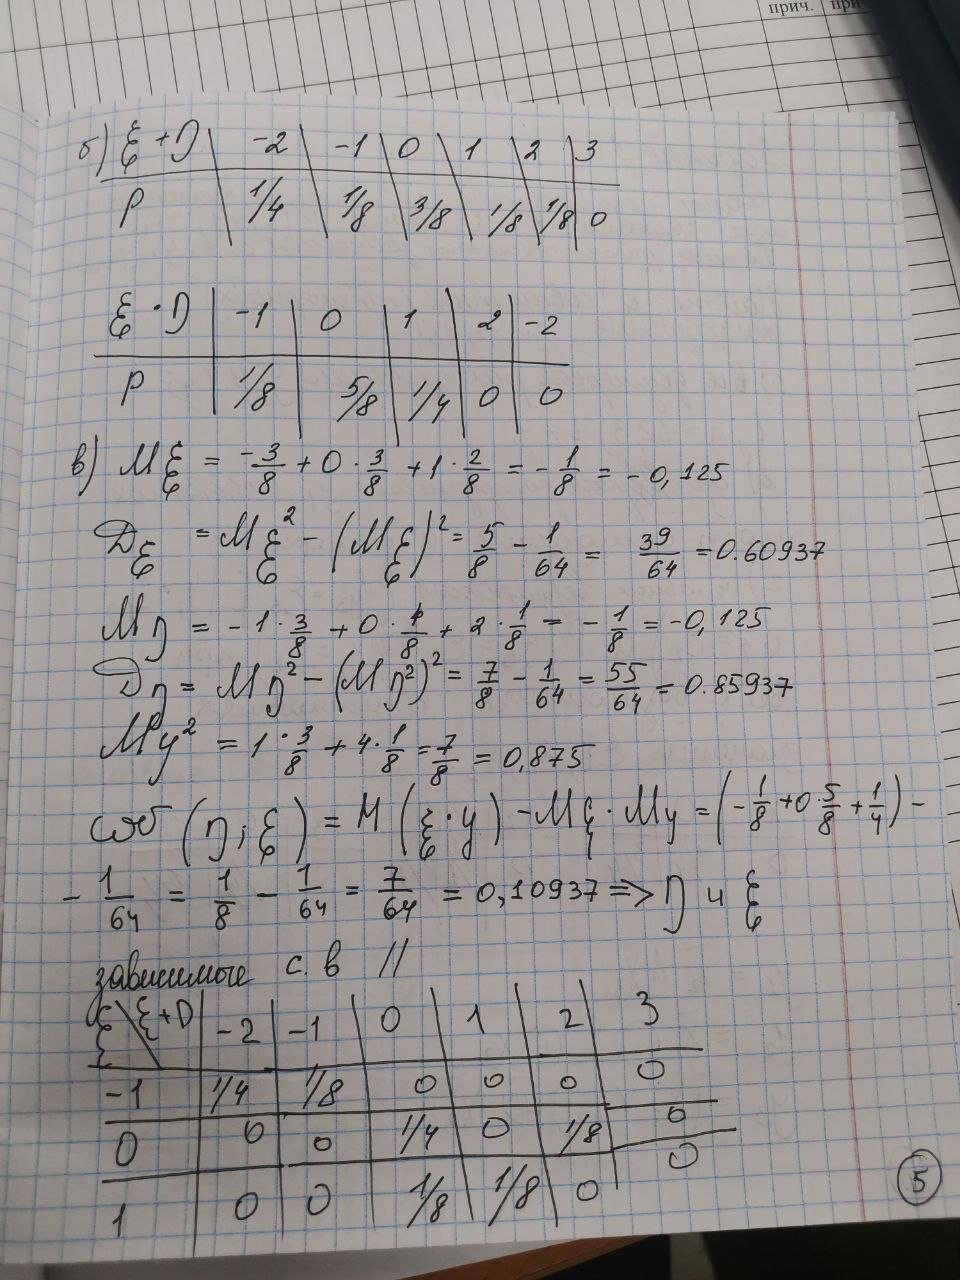 прич.
б) ξ+η | -2 | -1 | 0 | 1 | 2 | 3
P | 1/4 | 1/8 | 3/8 | 1/8 | 1/8 | 0
ξ·η | -1 | 0 | 1 | 2 | -2
P | 1/8 | 5/8 | 1/4 | 0 | 0
в) Mξ = -3/8 + 0·3/8 + 1·2/8 = -1/8 = -0,125
Dξ = Mξ² - (Mξ)² = 5/8 - 1/64 = 39/64 = 0.60937
Mη = -1·3/8 + 0·4/8 + 2·1/8 = -1/8 = -0,125
Dη = Mη² - (Mη²)² = 7/8 - 1/64 = 55/64 = 0.85937
My² = 1·3/8 + 4·1/8 = 7/8 = 0,875
cov (η; ξ) = M (ξ·y) - Mξ·My = (-1/8 + 0·5/8 + 1/4) -
- 1/64 = 1/8 - 1/64 = 7/64 = 0,10937 => η и ξ
зависимые с.в //
ξ \ ξ+η | -2 | -1 | 0 | 1 | 2 | 3
-1 | 1/4 | 1/8 | 0 | 0 | 0 | 0
0 | 0 | 0 | 1/4 | 0 | 1/8 | 0
1 | 0 | 0 | 1/8 | 1/8 | 0 | 0
5